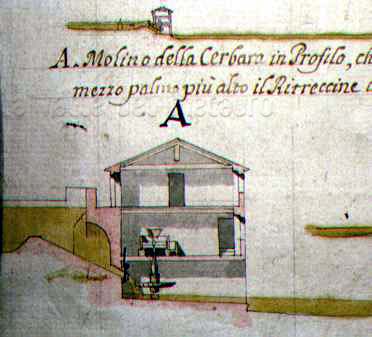 A. Molino della Cerbara in Profilo, ch
mezzo palmo più alto il Ritreccine
A